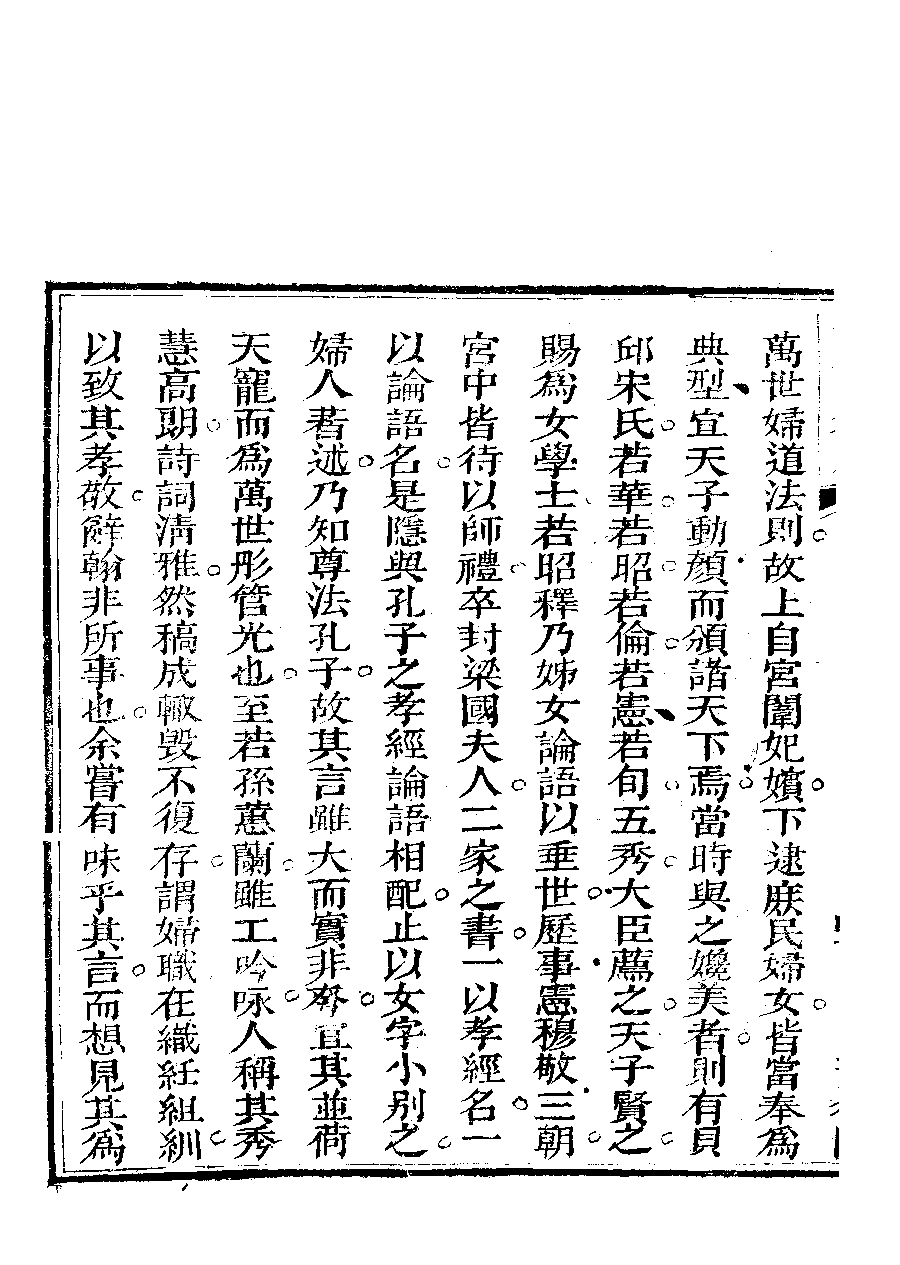 萬世婦道法則故上自宮闈妃嬪下逮庶民婦女皆當奉爲
典型宣天子動顏而頒誥天下焉當時與之嬓美者則有貝
邱宋氏若華若昭若倫若憲若旬五秀大臣薦之天子賢之
賜爲女學士若昭釋乃姊女論語以垂世歷事憲穆敬三朝
宮中皆待以師禮卒封梁國夫人二家之書一以孝經名一
以論語名是隱與孔子之孝經論語相配止以女字小別之
婦人著述乃知尊法孔子故其言雖大而實非夸宜其並荷
天寵而爲萬世彤管光也至若孫蕙蘭雖工吟咏人稱其秀
慧高朗詩詞淸雅然稿成輙毁不復存謂婦職在織紝組紃
以致其孝敬辭翰非所事也余嘗有味乎其言而想見其爲